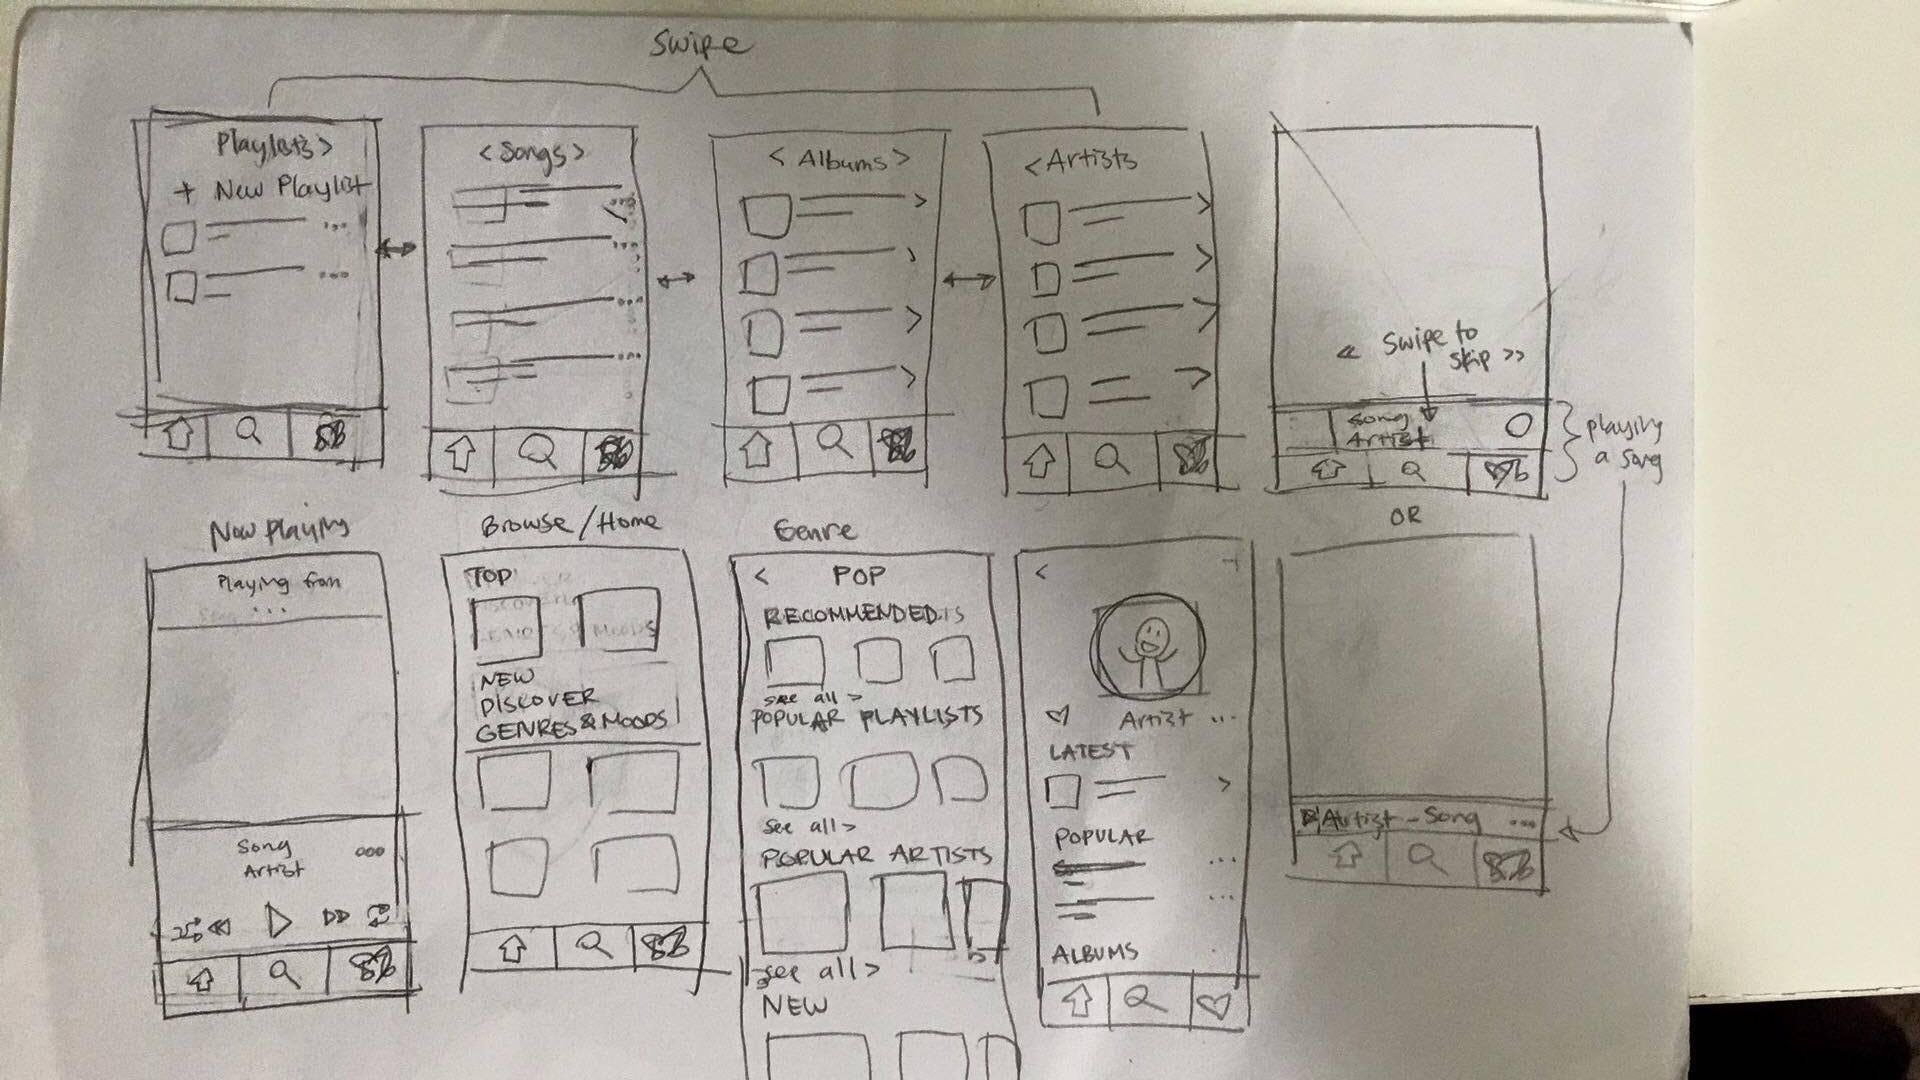 Swipe
Playlists >
+ New Playlist
...
...
< Songs >
...
...
...
...
< Albums >
>
>
>
>
< Artists
>
>
>
>
<< Swipe to
skip >>
Song
Artist
playing
a song
OR
Now Playing
Playing from
...
Song
Artist
ooo
Browse/Home
TOP
NEW
DISCOVER
GENRES & MOODS
Genre
< POP
RECOMMENDED
see all >
POPULAR PLAYLISTS
See all >
POPULAR ARTISTS
see all >
NEW
<
Artist ...
LATEST
>
POPULAR
...
...
ALBUMS
Artist - Song ...